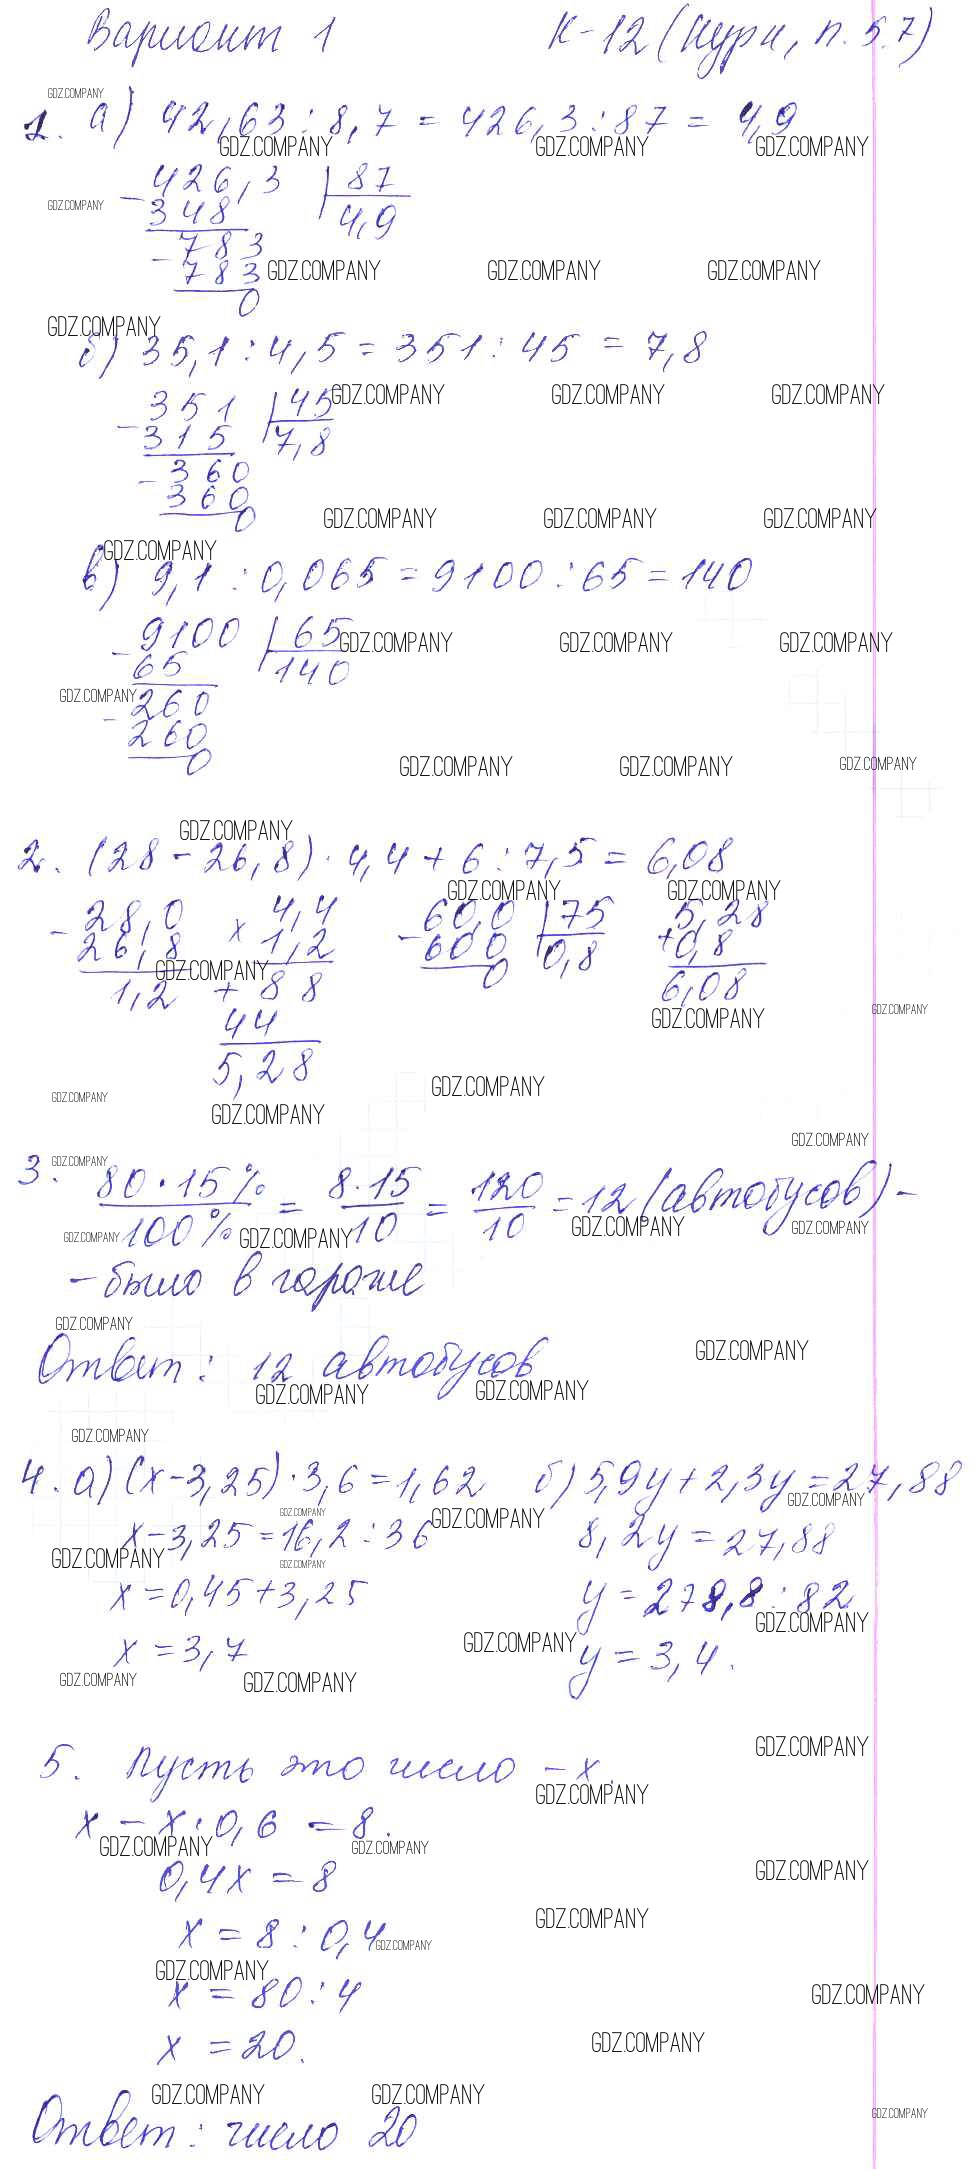 Вариант 1 К-12 (Нурк, п. 5.7)
GDZ.COMPANY
1. а) 42,63 : 8,7 = 426,3 : 87 = 4,9
GDZ.COMPANY GDZ.COMPANY GDZ.COMPANY
- 426,3 | 87
GDZ.COMPANY 348 4,9
- 783
783 GDZ.COMPANY GDZ.COMPANY GDZ.COMPANY
0
GDZ.COMPANY
б) 35,1 : 4,5 = 351 : 45 = 7,8
GDZ.COMPANY GDZ.COMPANY GDZ.COMPANY
- 351 | 45
315 7,8
- 360
360
0 GDZ.COMPANY GDZ.COMPANY GDZ.COMPANY
GDZ.COMPANY
в) 9,1 : 0,065 = 9100 : 65 = 140
- 9100 | 65 GDZ.COMPANY GDZ.COMPANY GDZ.COMPANY
65 140
GDZ.COMPANY
- 260
260
0 GDZ.COMPANY GDZ.COMPANY GDZ.COMPANY
GDZ.COMPANY
2. (28 - 26,8) · 4,4 + 6 : 7,5 = 6,08
GDZ.COMPANY GDZ.COMPANY
- 28,0 × 4,4 - 60,0 | 75 5,28
26,8 1,2 600 0,8 + 0,8
GDZ.COMPANY
1,2 + 88 0 6,08
44 GDZ.COMPANY GDZ.COMPANY
5,28
GDZ.COMPANY GDZ.COMPANY
GDZ.COMPANY
GDZ.COMPANY
GDZ.COMPANY
3. 80 · 15% / 100% = 8 · 15 / 10 = 120 / 10 = 12 (автобусов) -
GDZ.COMPANY GDZ.COMPANY GDZ.COMPANY GDZ.COMPANY
- было в гараже
GDZ.COMPANY
Ответ : 12 автобусов GDZ.COMPANY
GDZ.COMPANY GDZ.COMPANY
GDZ.COMPANY
4. а) (x - 3,25) · 3,6 = 1,62 б) 5,9y + 2,3y = 27,88
GDZ.COMPANY GDZ.COMPANY GDZ.COMPANY
x - 3,25 = 16,2 : 36 8,2y = 27,88
GDZ.COMPANY GDZ.COMPANY
x = 0,45 + 3,25 y = 278,8 : 82
GDZ.COMPANY
x = 3,7 GDZ.COMPANY y = 3,4.
GDZ.COMPANY GDZ.COMPANY
GDZ.COMPANY
5. Пусть это число - x.
GDZ.COMPANY
x - x · 0,6 = 8.
GDZ.COMPANY GDZ.COMPANY
0,4x = 8 GDZ.COMPANY
GDZ.COMPANY
x = 8 : 0,4
GDZ.COMPANY
GDZ.COMPANY
x = 80 : 4 GDZ.COMPANY
x = 20. GDZ.COMPANY
GDZ.COMPANY GDZ.COMPANY
GDZ.COMPANY
Ответ : число 20